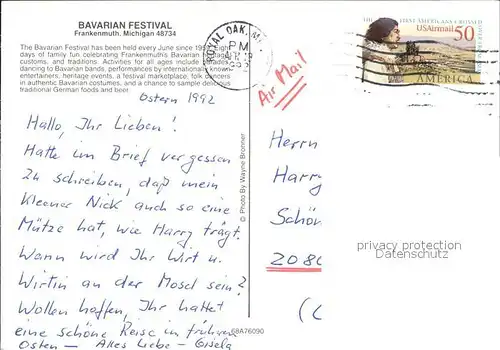 BAVARIAN FESTIVAL
Frankenmuth, Michigan 48734
The Bavarian Festival has been held every June since Eight
days of family fun celebrating Frankenmuth's Bavarian heritage,
customs, and traditions. Activities for all ages include parades,
dancing to Bavarian bands, performances by internationally known
entertainers, heritage events, a festival marketplace, folk dancers
in authentic Bavarian costumes, and a chance to sample delicious
traditional German foods and beer.
Ostern 1992
Hallo, Ihr Lieben!
Hatte im Brief vergessen
zu schreiben, daß mein
Kleener Nick auch so eine
Mütze hat, wie Harry trägt.
Wann wird Ihr Wirt u.
Wirtin an der Mosel sein?
Wollen hoffen, Ihr hattet
eine schöne Reise im frühen
Osten – Alles Liebe – Gisela
© Photo By Wayne Bronner
68A76090
ROYAL OAK, MI
PM
Air Mail
USAirmail 50
AMERICA
Herrn
Harry
Schön
2080
privacy protection
Datenschutz